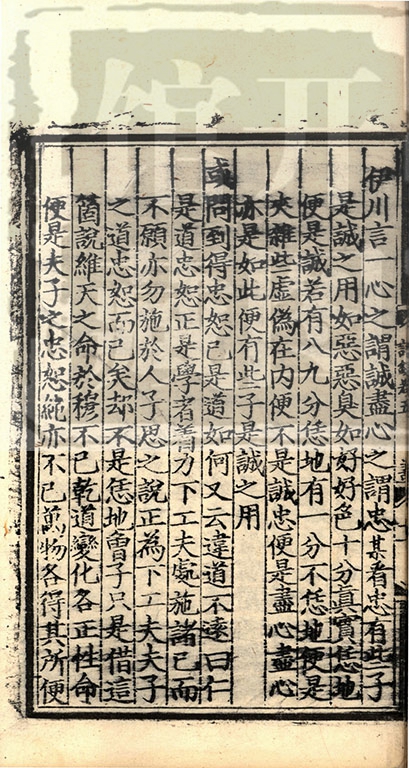 伊川言一心之謂誠盡心之謂忠某看忠有些子
是誠之用如惡惡臭如好好色十分真實恁地
便是誠若有八九分恁地有 分不恁地便是
夾雜些虛偽在內便不是誠忠便是盡心盡心
亦是如此便有些子是誠之用
或問到得忠恕已是道如何又云違道不遠曰仁
是道忠恕正是學者着力下工夫處施諸己而
不願亦勿施於人子思之說正為下工夫夫子
之道忠恕而已矣却不是恁地曾子只是借這
箇說維天之命於穆不已乾道變化各正性命
便是夫子之忠恕純亦不已萬物各得其所便